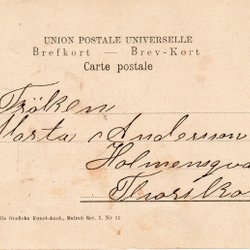 UNION POSTALE UNIVERSELLE
Brefkort — Brev-Kort
Carte postale
Fröken
Marta Andersson
Holmensga
Thorsko
Grafiska Konst-Anst., Malmö Ser. I. Nr 15